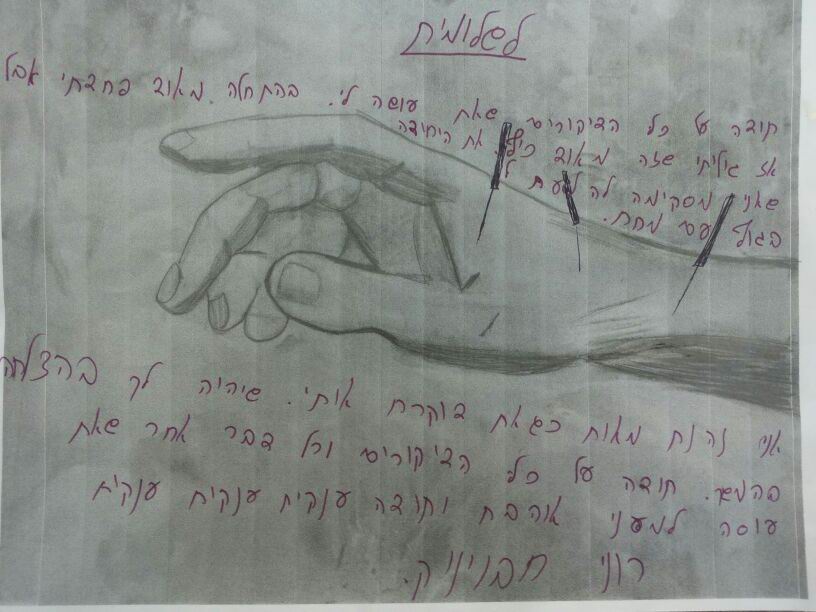 לשלומית
תודה על כל הדיקורים שאת עושה לי. בהתחלה מאוד פחדתי אבל
אז גיליתי שזה מאוד כיף. את היחידה
שאני מסכימה לה לגעת לי
בגוף עם מחט.
אני נהנת מאוד כשאת דוקרת אותי. שיהיה לך בהצלחה
בהמשך. תודה על כל הדיקורים וכל דבר אחר שאת
עוסה למעני אוהבת ותודה ענקית ענקית ענקית
רוני